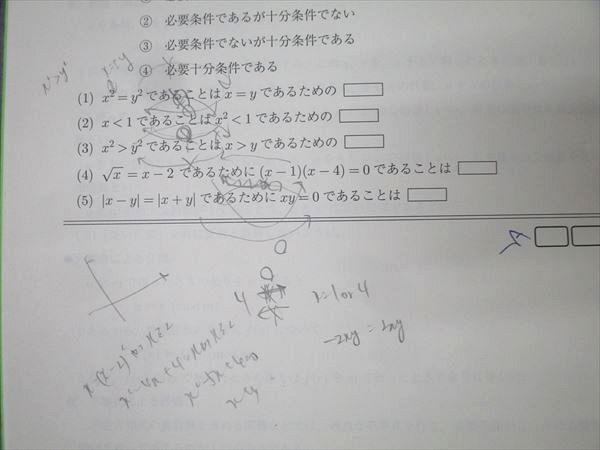 ② 必要条件であるが十分条件でない
③ 必要条件でないが十分条件である
④ 必要十分条件である
x²>y²
(1) x² = y² であることは x = y であるための
(2) x < 1 であることは x² < 1 であるための
(3) x² > y² であることは x > y であるための
(4) √x = x − 2 であるために (x − 1)(x − 4) = 0 であることは
(5) |x − y| = |x + y| であるために xy = 0 であることは
4
x=1 or 4
−2xy = 2xy